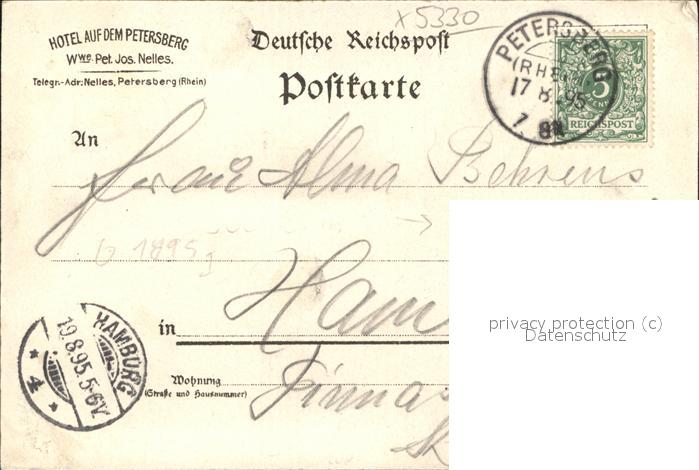 x 5330
HOTEL AUF DEM PETERSBERG
Wwe. Pet. Jos. Nelles.
Telegr.-Adr: Nelles, Petersberg (Rhein)
Deutsche Reichspost
Postkarte
PETERSBERG
(RHEIN)
17 8 95
REICHSPOST
An
Frau Alma Behrens
1895
Ham
in
HAMBURG
19.8.95.5-6V.
* 4 *
Wohnung
(Straße und Hausnummer)
Firma
privacy protection (c)
Datenschutz